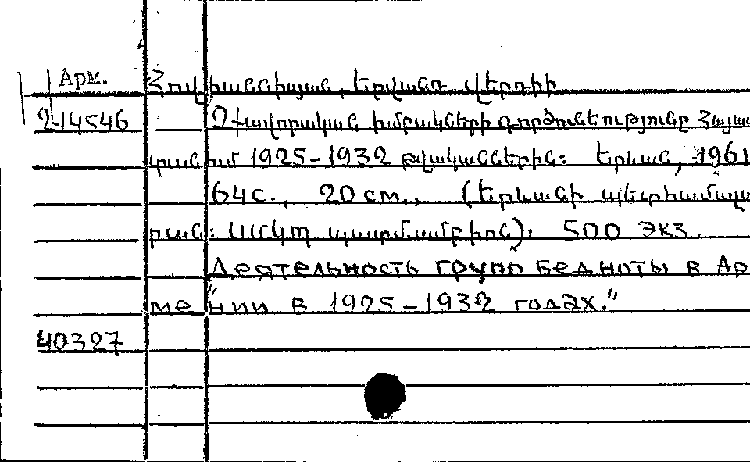 Арм.
Հովհաննիսյան, Երվանդ Վերդիի
2-14546
Չքավորական խմբակների գործունեությունը Հայաս
տանում 1925-1932 թվականներին: Երևան, 1961
64с., 20см., (Երևանի պետհամալս
րան: ՍՍԿՊ պատմամբիոն), 500 экз.
„Деятельность групп бедноты в Ар
мении в 1925-1932 годах."
40327